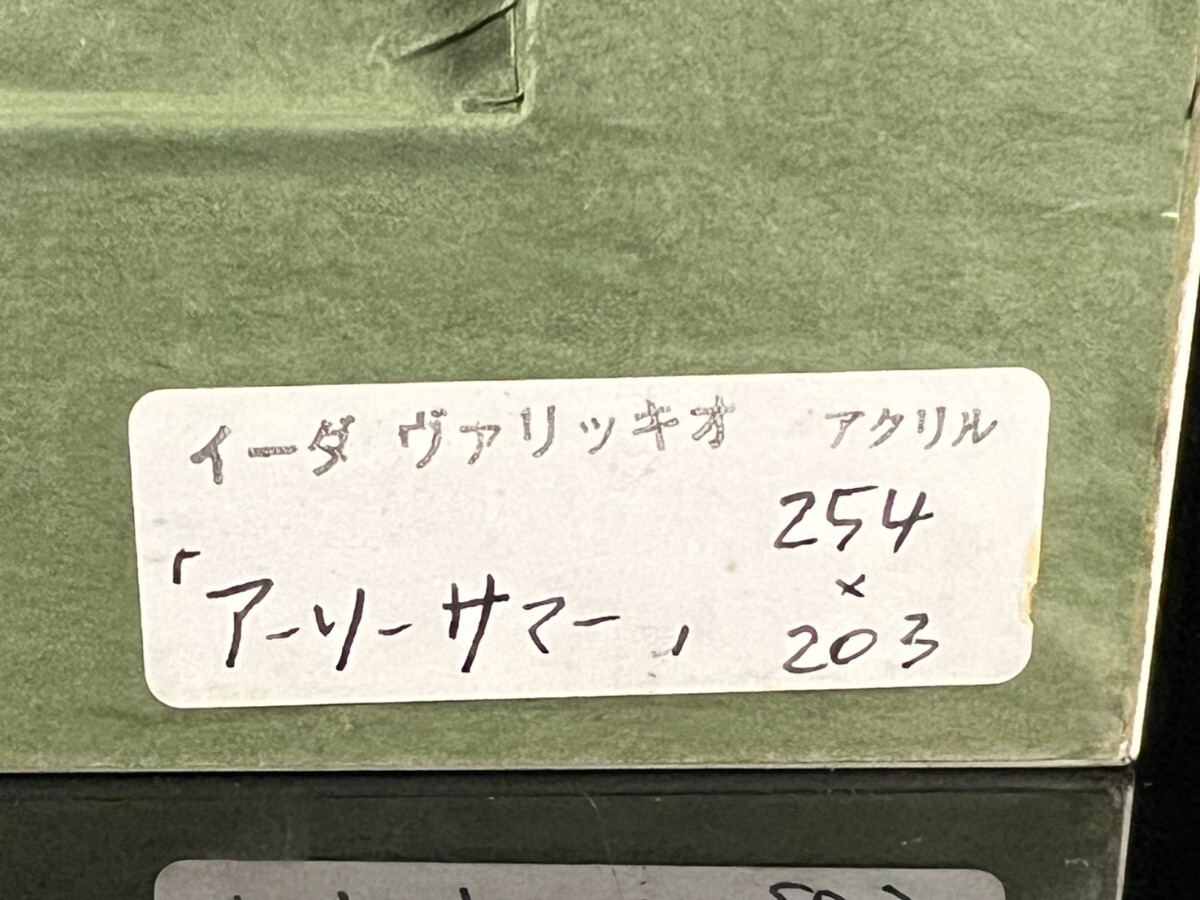 イーダ ヴァリッキオ アクリル
254
×
「アーリーサマー」 203